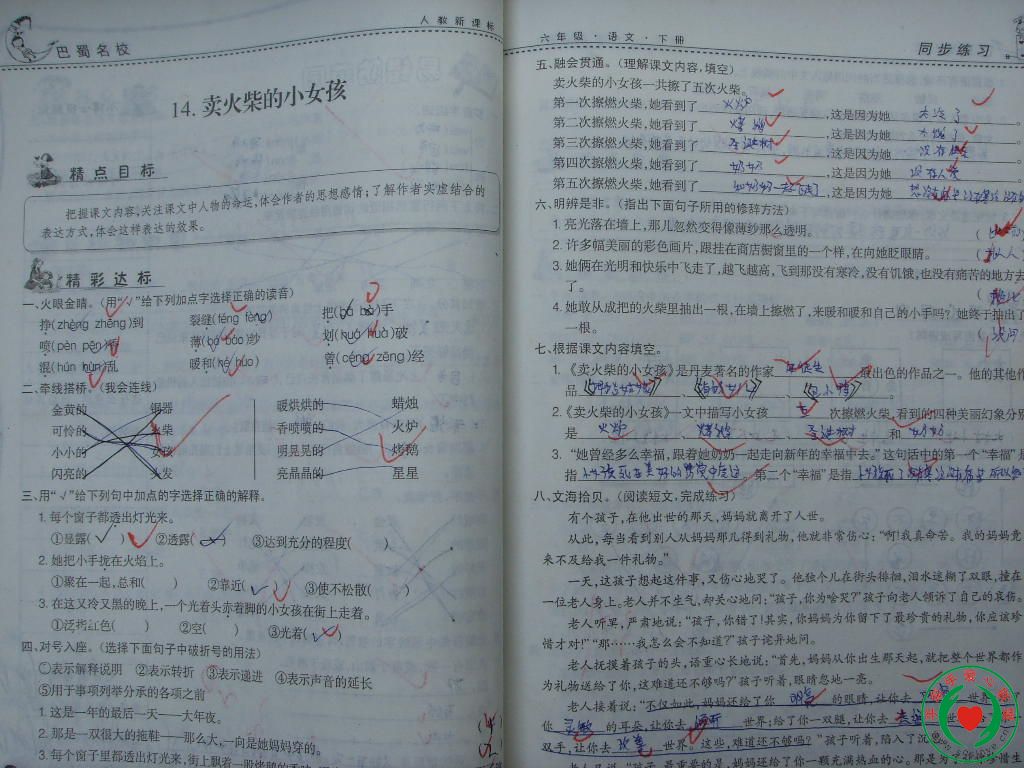 巴蜀名校
人教新课标
14. 卖火柴的小女孩
精点目标
把握课文内容,关注课文中人物的命运,体会作者的思想感情;了解作者实虚结合的
表达方式,体会这样表达的效果。
精彩达标
一、火眼金睛。(用“√”给下列加点字选择正确的读音)
挣(zhèng zhēng)到 裂缝(féng fèng) 把(bǎ bà)手
喷(pèn pēn)香 薄(bó báo)纱 划(huá huà)破
混(hún hùn)乱 暖和(hé huo) 曾(céng zēng)经
二、牵线搭桥。(我会连线)
金黄的 铜器 暖烘烘的 蜡烛
可怜的 火柴 香喷喷的 火炉
小小的 女孩 明晃晃的 烤鹅
闪亮的 头发 亮晶晶的 星星
三、用“√”给下列句中加点的字选择正确的解释。
1. 每个窗子都透出灯光来。
①显露(√) ②透露( ) ③达到充分的程度( )
2. 她把小手拢在火焰上。
①聚在一起,总和( ) ②靠近(√) ③使不松散( )
3. 在这又冷又黑的晚上,一个光着头赤着脚的小女孩在街上走着。
①泛指红色( ) ②空( ) ③光着(√)
四、对号入座。(选择下面句子中破折号的用法)
①表示解释说明 ②表示转折 ③表示递进 ④表示声音的延长
⑤用于事项列举分承的各项之前
1. 这是一年的最后一天——大年夜。
2. 那是一双很大的拖鞋——那么大,一向是她妈妈穿的。
3. 每个窗子里都透出灯光来,街上飘着一股烤鹅的香味
六年级·语文·下册
同步练习
五、融会贯通。(理解课文内容,填空)
卖火柴的小女孩一共擦了五次火柴。
第一次擦燃火柴,她看到了 火炉 ,这是因为她 太冷了 。
第二次擦燃火柴,她看到了 烤鹅 ,这是因为她 太饿了 。
第三次擦燃火柴,她看到了 圣诞树 ,这是因为她
第四次擦燃火柴,她看到了 奶奶 ,这是因为她 没有人爱
第五次擦燃火柴,她看到了 ,这是因为她
六、明辨是非。(指出下面句子所用的修辞方法)
1. 亮光落在墙上,那儿忽然变得像薄纱那么透明。
2. 许多幅美丽的彩色画片,跟挂在商店橱窗里的一个样,在向她眨眼睛。 (拟人
3. 她俩在光明和快乐中飞走了,越飞越高,飞到那没有寒冷,没有饥饿,也没有痛苦的地方去
了。
4. 她敢从成把的火柴里抽出一根,在墙上擦燃了,来暖和暖和自己的小手吗?她终于抽出了
一根。
七、根据课文内容填空。
1.《卖火柴的小女孩》是丹麦著名的作家 安徒生 最出色的作品之一。他的其他作
品
2.《卖火柴的小女孩》一文中描写小女孩 五 次擦燃火柴,看到的四种美丽幻象分别
是 火炉 、 烤鹅 、 圣诞树 和 奶奶
3. “她曾经多么幸福,跟着她奶奶一起走向新年的幸福中去。”这句话中的第一个“幸福”是
指 。第二个“幸福”是指
八、文海拾贝。(阅读短文,完成练习)
有个孩子,在他出世的那天,妈妈就离开了人世。
从此,每当看到别人从妈妈那儿得到礼物,他就非常伤心:“啊!我真命苦。我的妈妈竟
来不及给我一件礼物。”
一天,这孩子想起这件事,又伤心地哭了。他独个儿在街头徘徊,泪水迷糊了双眼,撞在
一位老人身上。老人并不生气,却关心地问:“孩子,你为啥哭?”孩子向老人倾诉了自己的哀伤。
老人听罢,严肃地说:“孩子,你错了!其实,你妈妈为你留下了最珍贵的礼物,你应该珍
惜才对!”“那……我怎么会不知道?”孩子诧异地问。
老人抚摸着孩子的头,语重心长地说:“首先,妈妈从你出生那天起,就把整个世界都作
为礼物送给了你,这难道还不够吗?”孩子听着,眼睛忽地一亮。
老人接着说:“不仅如此,妈妈还给了你 明亮 的眼睛,让你去 世界
你 灵敏 的耳朵,让你去 倾听 世界;给了你一双腿,让你去
双手,让你去 改善 世界。这些,难道还不够吗?”孩子听着,陷入了沉
老人又说:“孩子,最重要的是,妈妈还给了你一颗充满热血的心。那是为